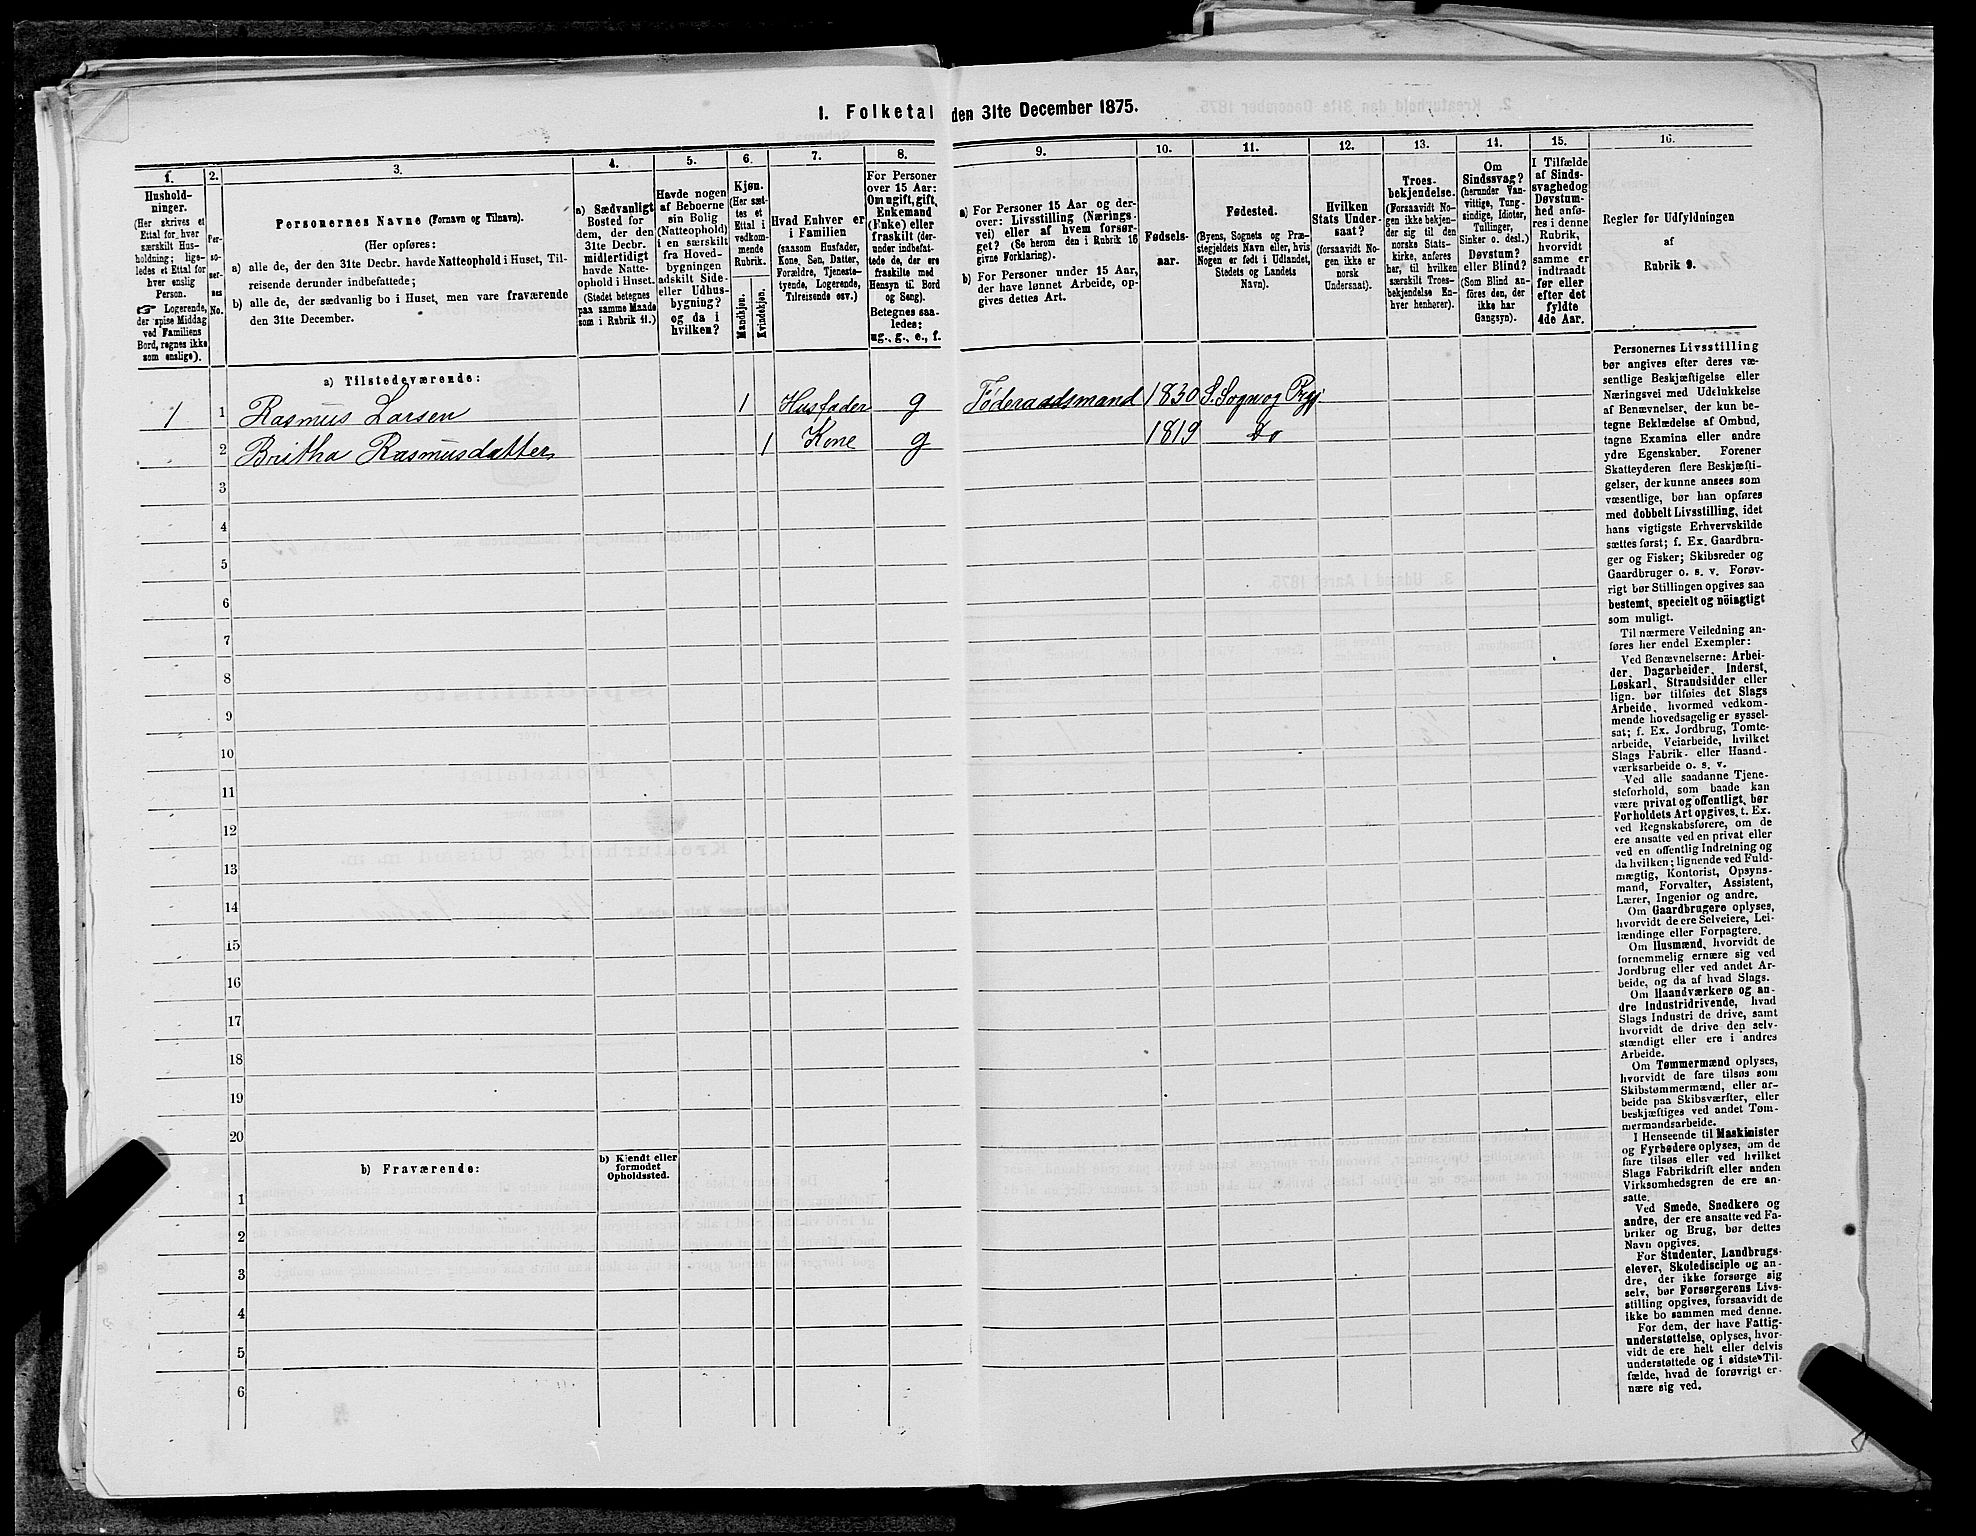 1. Folketal den 31te December 1875.
1.
Hushold-
ninger.
(Her skrives et
Ettal for hver
særskilt Hus-
holdning; lige-
ledes et Ettal for
hver enslig
Person.
☞ Logerende,
der spise Middag
ved Familiens
Bord, regnes ikke
som enslige).
2.
Per-
so-
ner-
nes
No.
3.
Personernes Navne (Fornavn og Tilnavn).
(Her opføres:
a) alle de, der den 31te Decbr. havde Natteophold i Huset, Til-
reisende derunder indbefattede;
b) alle de, der sædvanlig bo i Huset, men vare fraværende
den 31te December.
4.
a) Sædvanligt
Bosted for
dem, der den
31te Decbr.
midlertidigt
havde Natte-
ophold i Huset.
(Stedet betegnes
paa samme Maade
som i Rubrik 11.)
5.
Havde nogen
af Beboerne
sin Bolig
(Natteophold)
i en særskilt
fra Hoved-
bygningen
adskilt Side-
eller Udhus-
bygning?
og da i
hvilken?
6.
Kjøn.
(Her sæt-
tes et
Ettal i
vedkom-
mende
Rubrik.
Mandkjøn.
Kvindekjøn.
7.
Hvad Enhver er
i Familien
(saasom Husfader,
Kone, Søn, Datter,
Forældre, Tjeneste-
tyende, Logerende,
Tilreisende osv.)
8.
For Personer
over 15 Aar:
Om ugift, gift,
Enkemand
(Enke) eller
fraskilt (der-
under indbefat-
tede de, der ere
fraskilte med
Hensyn til Bord
og Seng).
Betegnes saa-
ledes:
ug., g., e., f.
9.
a) For Personer 15 Aar og der-
over: Livsstilling (Nærings-
vei) eller af hvem forsør-
get? (Se herom den i Rubrik 16
givne Forklaring).
b) For Personer under 15 Aar,
der have lønnet Arbeide, op-
gives dettes Art.
10.
Fødsels-
aar.
11.
Fødested.
(Byens, Sognets og Præ-
stegjeldets Navn eller, hvis
Nogen er født i Udlandet,
Stedets og Landets
Navn).
12.
Hvilken
Stats Under-
saat?
(forsaavidt No-
gen ikke er
norsk
Undersaat).
13.
Troes-
bekjendelse.
(Forsaavidt No-
gen ikke bekjen-
der sig til den
norske Stats-
kirke, anføres
her, til hvilken
særskilt Troes-
bekjendelse En-
hver henhører).
14.
Om
Sindssvag?
(herunder Van-
vittige, Tung-
sindige, Idioter,
Tullinger,
Sinker o. desl.)
Døvstum?
eller Blind?
(Som Blind an-
føres den, der
ikke har
Gangsyn).
15.
I Tilfælde
af Sinds-
svaghed og
Døvstum-
hed anfø-
res i denne
Rubrik,
hvorvidt
samme er
indtraadt
før eller
efter det
fyldte
4de Aar.
16.
Regler for Udfyldningen
af
Rubrik 9.
a) Tilstedeværende:
1 1 Rasmus Larsen 1 Husfader g Føderaadsmand 1830 S. Sogn og Prgj.
2 Britha Rasmusdatter 1 Kone g 1819 Do
3
4
5
6
7
8
9
10
11
12
13
14
15
16
17
18
19
20
b) Fraværende:
b) Kjendt eller
formodet
Opholdssted.
1
2
3
4
5
6
Personernes Livsstilling
bør angives efter deres væ-
sentlige Beskjæftigelse eller
Næringsvei med Udelukkelse
af Benævnelser, der kun be-
tegne Beklædelse af Ombud,
tagne Examina eller andre
ydre Egenskaber. Forener
Skatteyderen flere Beskjæfti-
gelser, der kunne ansees som
væsentlige, bør han opføres
med dobbelt Livsstilling, idet
hans vigtigste Erhvervskilde
sættes først; f. Ex. Gaardbru-
ger og Fisker; Skibsreder og
Gaardbruger o. s. v. Forøv-
rigt bør Stillingen opgives saa
bestemt, specielt og nöiagtigt
som muligt.
Til nærmere Veiledning an-
føres her endel Exempler:
Ved Benævnelserne: Arbei-
der, Dagarbeider, Inderst,
Løskarl, Strandsidder eller
lign. bør tilføies det Slags
Arbeide, hvormed vedkom-
mende hovedsagelig er syssel-
sat; f. Ex. Jordbrug, Tomte-
arbeide, Veiarbeide, hvilket
Slags Fabrik- eller Haand-
værksarbeide o. s. v.
Ved alle saadanne Tjene-
steforhold, som baade kan
være privat og offentligt, bør
Forholdets Art opgives, t. Ex.
ved Regnskabsførere, om de
ere ansatte ved en privat eller
ved en offentlig Indretning og
da hvilken; lignende ved Fuld-
mægtig, Kontorist, Opsyns-
mand, Forvalter, Assistent,
Lærer, Ingeniør og andre.
Om Gaardbrugere oplyses,
hvorvidt de ere Selveiere, Lei-
lændinge eller Forpagtere.
Om Husmænd, hvorvidt de
fornemmelig ernære sig ved
Jordbrug eller ved andet Ar-
beide, og da af hvad Slags.
Om Haandværkere og an-
dre Industridrivende, hvad
Slags Industri de drive, samt
hvorvidt de drive den selv-
stændigt eller ere i andres
Arbeide.
Om Tømmermænd oplyses,
hvorvidt de fare tilsøs som
Skibstømmermænd, eller ar-
beide paa Skibsværfter, eller
beskjæftiges ved andet Tøm-
mermandsarbeide.
I Henseende til Maskinister
og Fyrbødere oplyses, om de
fare tilsøs eller ved hvilket
Slags Fabrikdrift eller anden
Virksomhedsgren de ere an-
satte.
Ved Smede, Snedkere og
andre, der ere ansatte ved Fa-
briker og Brug, bør dettes
Navn opgives.
For Studenter, Landbrugs-
elever, Skoledisciple og an-
dre, der ikke forsørge sig
selv, bør Forsørgerens Livs-
stilling opgives, forsaavidt de
ikke bo sammen med denne.
For dem, der have Fattig-
understøttelse, oplyses, hvor-
vidt de ere helt eller delvis
understøttede og i sidste Til-
fælde, hvad de forøvrigt er-
nære sig ved.